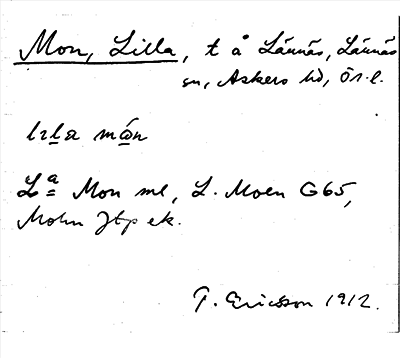 Mon, Lilla, t å Lännäs, Lännäs
sn, Askers hd, Ör.l.
lıla món
La Mon ml, L. Moen G65,
Mohn Jtp ek.
T. Ericsson 1912.